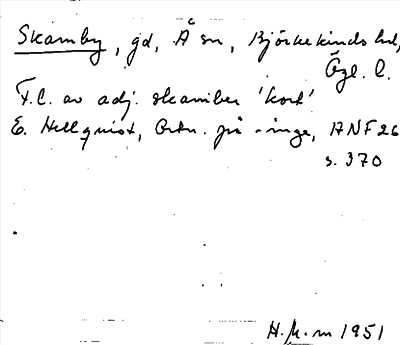 Skamby, gd, Å sn, Björkekinds hd,
Ögl. l.
F.l. av adj. skamber 'kort'
E. Hellquist, Ortn. på -inge, ANF 26
s. 370
H. M-m 1951